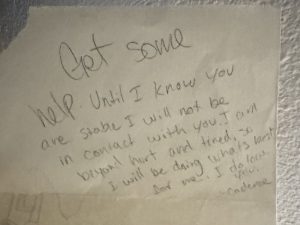 Get some
help. Until I know you
are stable I will not be
in contact with you. I am
beyond hurt and tired, so
I will be doing whats best
for me. I do love
you.
- Cadence